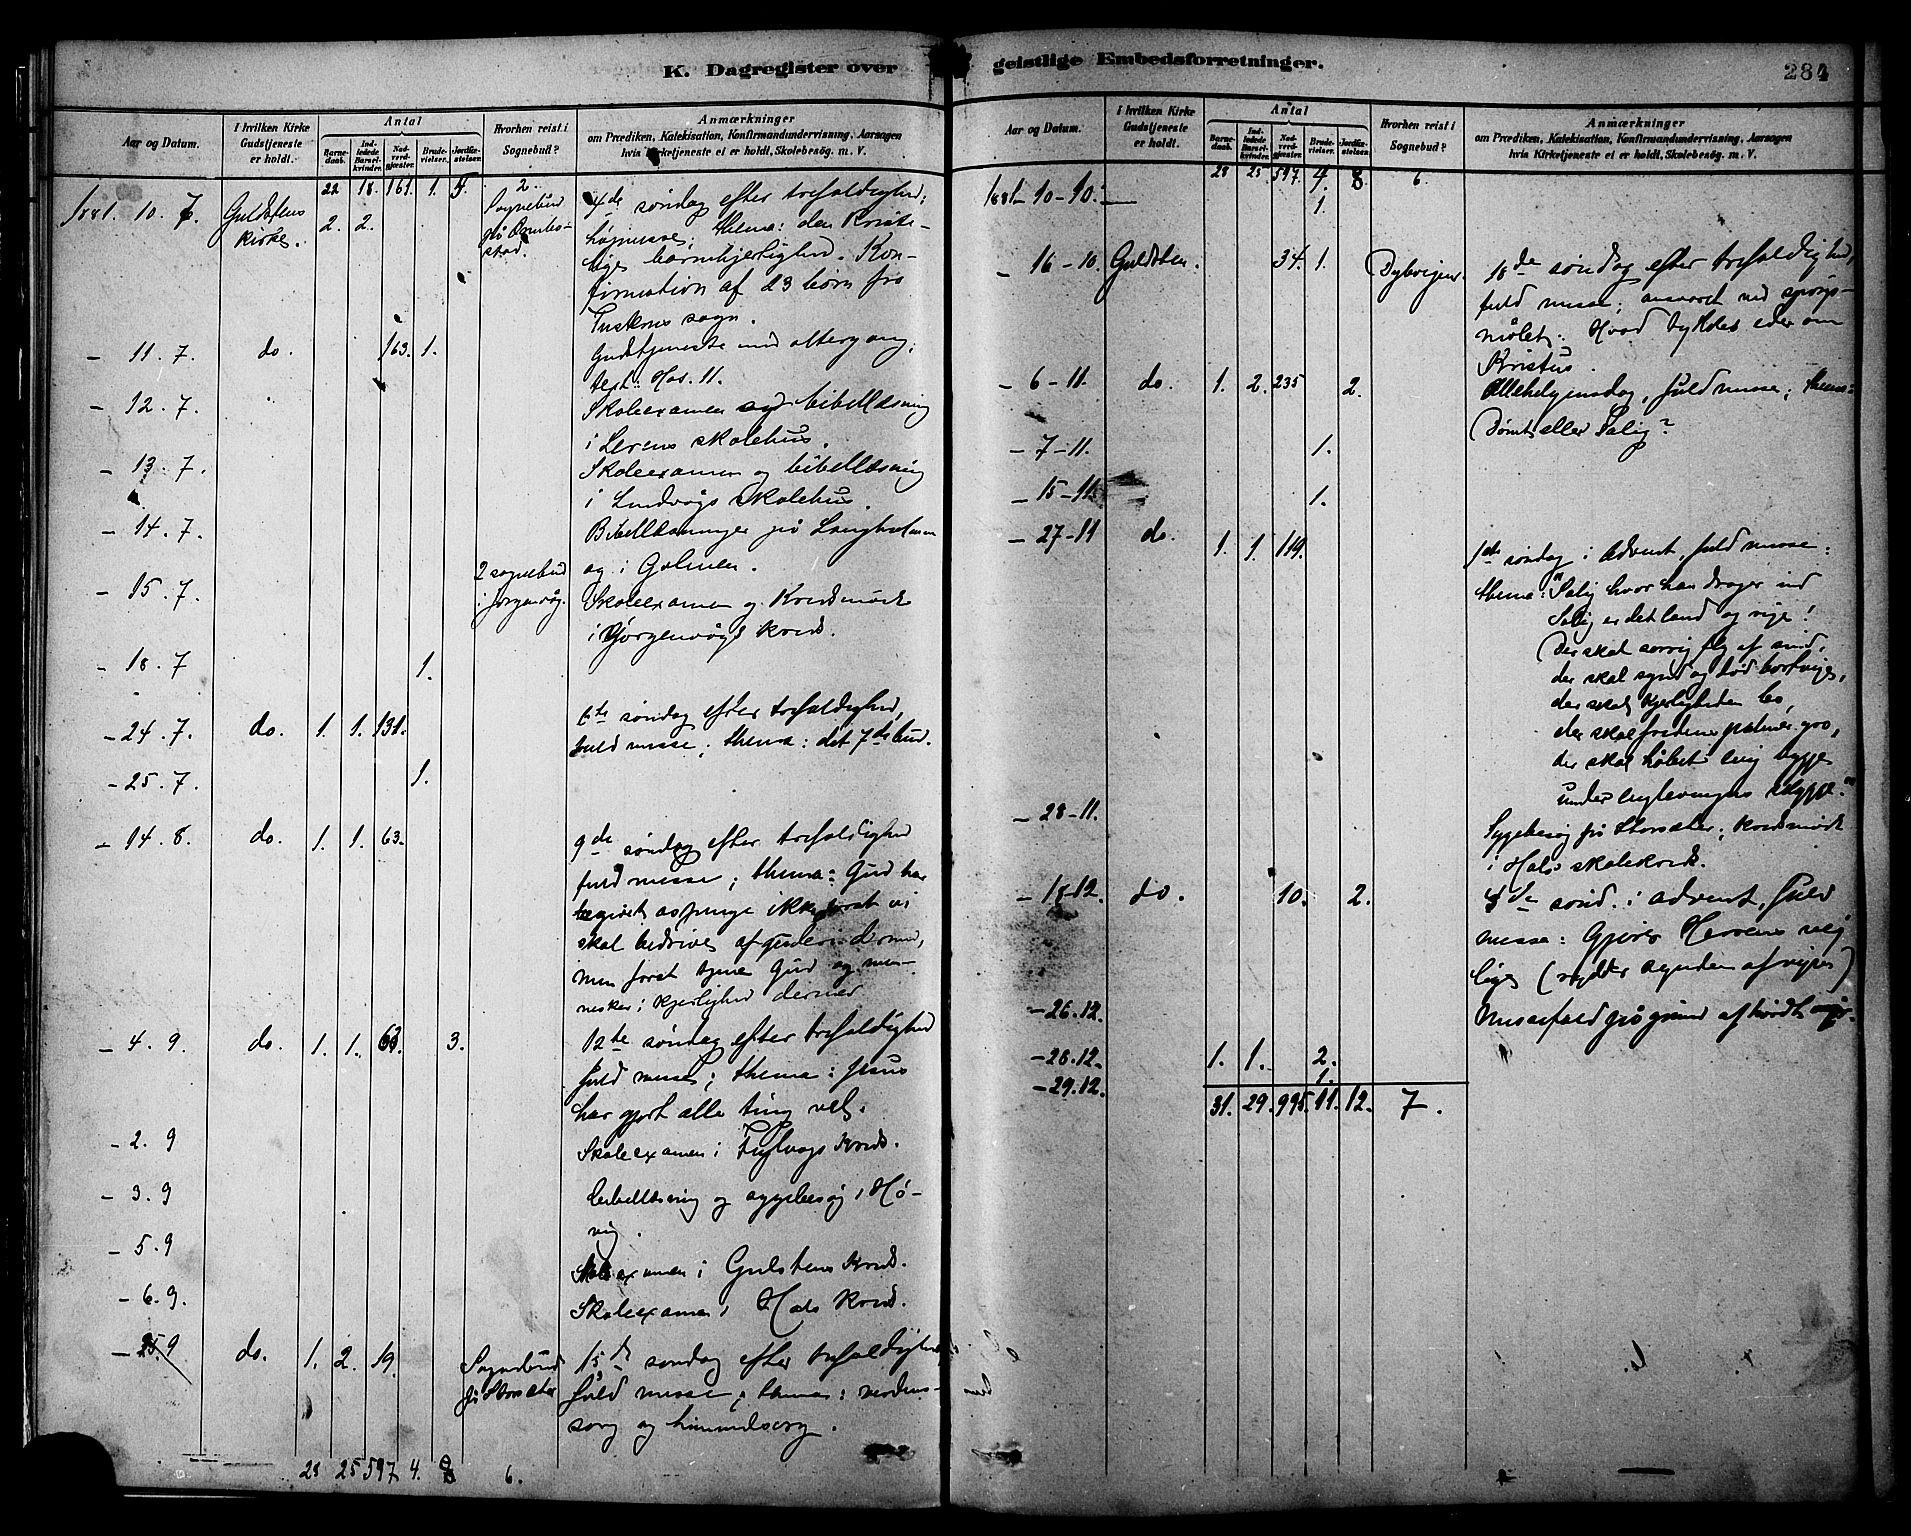 K. Dagregister over geistlige Embedsforretninger.
284
Aar og Datum.
I hvilken Kirke Gudstjeneste er holdt.
Antal
Barnedaab.
Indledede Barselkvinder.
Nadverdgjæster.
Brudevielser.
Jordfæstelser.
Hvorhen reist i Sognebud?
Anmærkninger
om Prædiken, Katekisation, Konfirmandundervisning, Aarsagen
hvis Kirketjeneste ei er holdt, Skolebesøg. m. V.
22 18. 161. 1. 5. 2.
1881. 10. 7. Guldstens kirke. 2. 2. Sognebud på
4de søndag efter trefoldighed;
højmesse; thema: den kriste-
lige barmhjertighed. Kon-
firmation af 23 børn fra
Tustern sogn.
- 11. 7. do. 163. 1. Gudstjeneste med altergang;
text: Hos. 11.
- 12. 7. Skoleexamen og bibellæsning
i Lerens skolehus.
- 13. 7. Skoleexamen og bibellæsning
i skolehus.
- 14. 7. Bibellæsninger på Langholmen
og i Golmen.
- 15. 7. 2 sognebud i Jørgenvåg. Skoleexamen og kredsmøde
i Jørgenvågs kreds.
- 18. 7 1.
- 24. 7. do. 1. 1. 131. 6te søndag efter trefoldighed,
fuld messe; thema: det 7de bud.
- 25. 7. 1.
- 14. 8. do. 1. 1. 63. 9de søndag efter trefoldighed
fuld messe; thema: Gud har
os penge ikke forat vi
skal bedrive afguderi dermed,
men forat tjene Gud og men-
nesker i kjerlighed dermed
- 4. 9. do. 1. 1. 3. 12te søndag efter trefoldighed
fuld messe; thema: Jesus
har gjort alle ting vel.
- 2. 9 Skoleexamen i kreds.
- 3. 9 bibellæsning og sygebesøg i Hø-
vig.
- 5. 9 Skoleexamen i Gulstens kreds.
- 6. 9. Skoleexamen i Hals kreds.
- 25. 9 do. 1. 2. 19. Sognebud på Storsæter 15de søndag efter trefoldighed
fuld messe; thema: verdens-
sorg og himmelsorg.
28 25 597 4. 8 6.
Aar og Datum.
I hvilken Kirke Gudstjeneste er holdt.
Antal
Barnedaab.
Indledede Barselkvinder.
Nadverdgjæster.
Brudevielser.
Jordfæstelser.
Hvorhen reist i Sognebud?
Anmærkninger
om Prædiken, Katekisation, Konfirmandundervisning, Aarsagen
hvis Kirketjeneste ei er holdt, Skolebesøg. m. V.
28 25 597. 4. 8. 6.
1881 - 10 - 10. 1.
- 16 - 10. Guldsten. 34. 1. Dybvigen. 18de søndag efter trefoldighed,
fuld messe; ansvaret ved spørgs-
målet: Hvad tykkes eder om
Kristus.
- 6 - 11. do. 1. 2. 235 2. Allehelgensdag, fuld messe; thema:
Dømt eller Salig?
- 7 - 11. 1.
- 15 - 11. 1.
- 27 - 11 do. 1. 1. 119. 1ste søndag i advent, fuld messe:
thema: "Salig hvor han drager ind
Salig er det land og rige!
Der skal sorrig fly af sind,
der skal synd og død bortvige,
der skal kjerligheden bo,
der skal fredens palmer gro,
der skal håbet lig bygge
under englevingers skygge."
- 28 - 11. Sygebesøg på Storsæter; kredsmøde
i Hals skolekreds.
- 18 - 12. do. 10. 2. 4de sønd. i advent, fuld
messe: Gjører Herrens vej
lige (rydder synden af vejen)
- 26. 12. Messefald på grund af hårdt vejr.
- 28. 12. 1. 1. 2.
- 29. 12. 1.
31. 29. 995. 11. 12. 7.